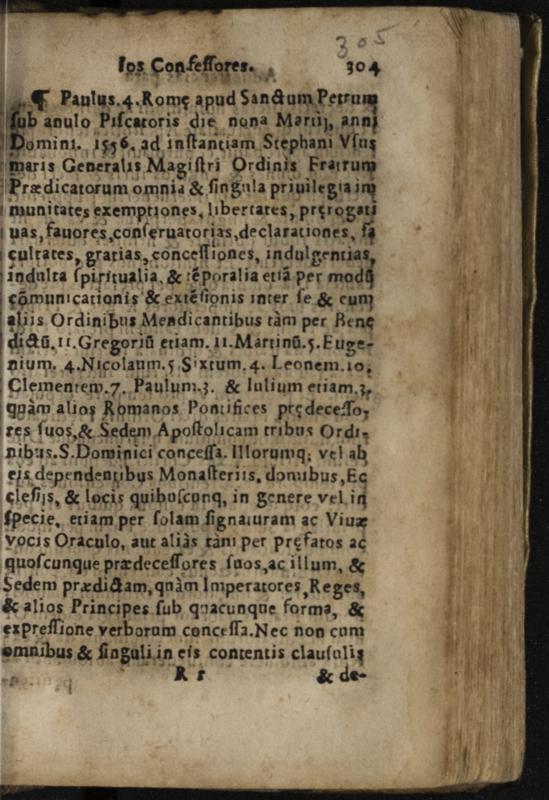 305
los Confessores. 304
¶ Paulus.4.Romę apud Sanctum Petrum
sub anulo Piscatoris die nona Martij, anni
Domini. 1556. ad instantiam Stephani Vsus
maris Generalis Magistri Ordinis Fratrum
Prædicatorum omnia & singula priuilegia im
munitates exemptiones, libertates, pręrogati
uas, fauores, conseruatorias, declarationes, fa
cultates, gratias, concessiones, indulgentias,
indulta spiritualia, & tēporalia etiā per modū
cōmunicationis & extēsionis inter se & cum
aliis Ordinibus Mendicantibus tàm per Bene
dictū.11.Gregoriū etiam.11.Martinū.5.Euge-
nium. 4.Nicolaum.5.Sixtum.4. Leonem.10.
Clementem.7. Paulum.3. & Iulium etiam.3.
quàm alios Romanos Pontifices prędecesso-
res suos, & Sedem Apostolicam tribus Ordi-
nibus.S.Dominici concessa. Illorumq; vel ab
eis dependentibus Monasteriis, domibus, Ec
clesijs, & locis quibuscunq, in genere vel in
specie, etiam per solam signaturam ac Viuæ
vocis Oraculo, aut aliàs tàm per pręfatos ac
quoscunque prædecessores suos, ac illum, &
Sedem prædictam, quàm Imperatores, Reges,
& alios Principes sub quacunque forma, &
expressione verborum concessa. Nec non cum
omnibus & singuli in eis contentis clausulis
R r & de-